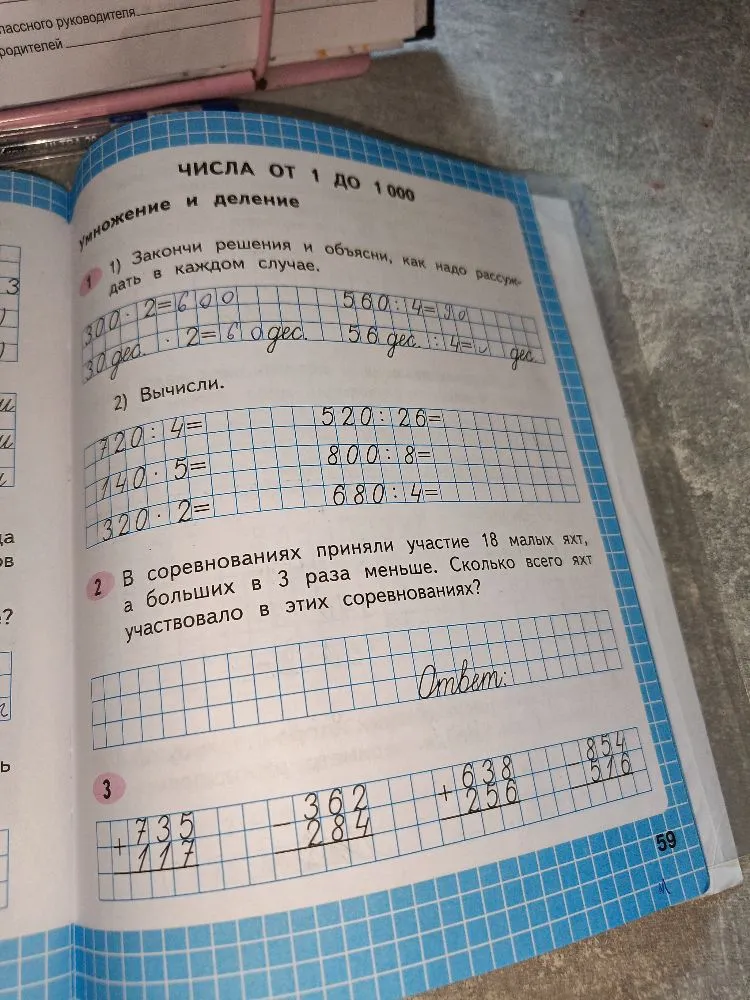 лассного руководителя
родителей
ЧИСЛА ОТ 1 ДО 1 000
умножение и деление
1 1) Закончи решения и объясни, как надо рассуж-
дать в каждом случае.
300 · 2 = 600 560 : 4 =
30 дес. · 2 = 60 дес. 56 дес. : 4 = дес.
2) Вычисли.
720 : 4 = 520 : 26 =
140 · 5 = 800 : 8 =
320 · 2 = 680 : 4 =
2 В соревнованиях приняли участие 18 малых яхт,
а больших в 3 раза меньше. Сколько всего яхт
участвовало в этих соревнованиях?
Ответ:
3
+ 735 − 362 + 638 − 854
117 284 256 516
59